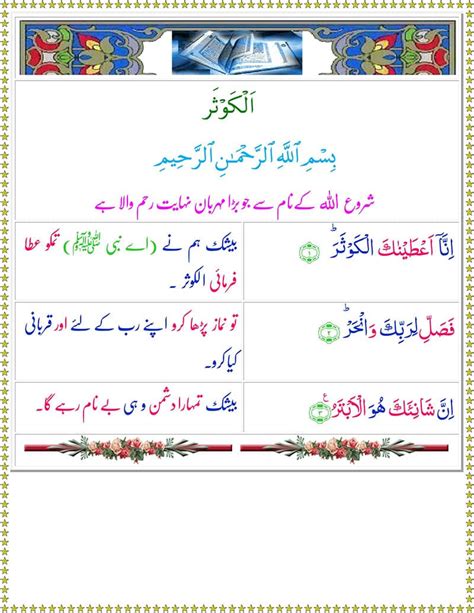 اَلْكَوْثَر
بِسْمِ اللّٰهِ الرَّحْمٰنِ الرَّحِيْمِ
شروع اللہ کے نام سے جو بڑا مہربان نہایت رحم والا ہے
اِنَّاۤ اَعْطَيْنٰكَ الْكَوْثَرَؕ ۝۱
بیشک ہم نے (اے نبی ﷺ) تمکو عطا
فرمائی الکوثر ۔
فَصَلِّ لِرَبِّكَ وَانْحَرْؕ ۝۲
تو نماز پڑھا کرو اپنے رب کے لئے اور قربانی
کیا کرو۔
اِنَّ شَانِئَكَ هُوَ الْاَبْتَرُ ۝۳ ع
بیشک تمہارا دشمن وہی بے نام رہے گا۔